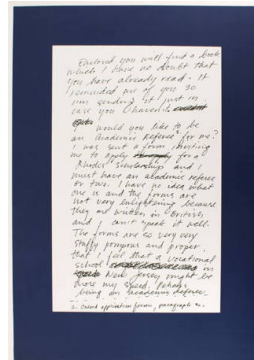 Enclosed you will find a book
which I have no doubt that
you have already read. It
reminded me of you so
I'm sending it just in
case you haven't.
Would you like to be
an academic referee for me?
I was sent a form inviting
me to apply for a
Rhodes Scholarship and I
must have an academic referee
or two. I have no idea what
one is and the forms are
not very enlightening because
they are written in British
and I can't speak it well.
The forms are so very very
stuffy pompous and proper
that I feel that a vocational
school in
New Jersey might be
more my speed. Perhaps
being an academic referee